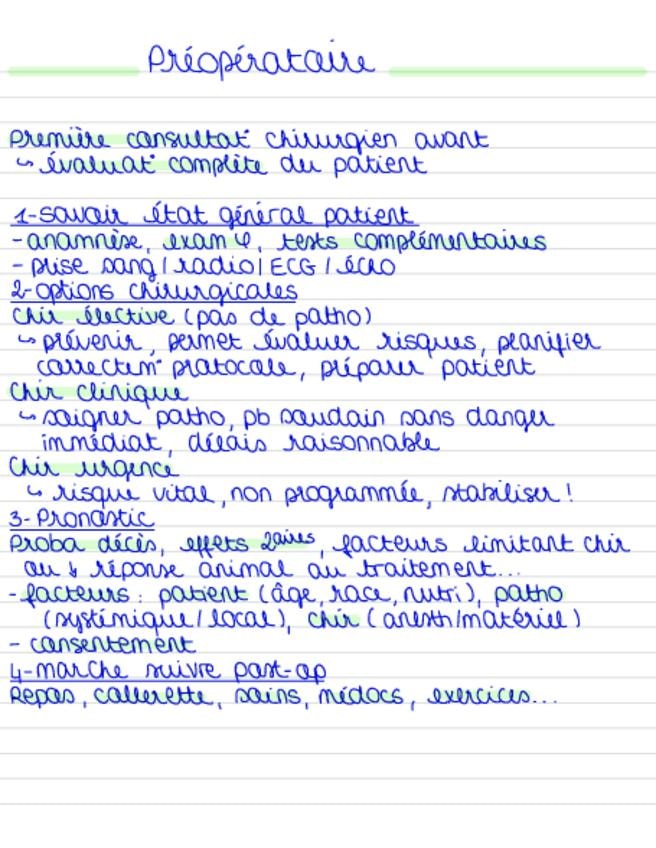 Préopérataire
Première consultat° chirurgien avant
↳ évaluat° complète du patient
1-savoir état général patient
-anamnèse, exam φ, tests complémentaires
- prise sang / radio / ECG / écho
2-options chirurgicales
Chir élective (pas de patho)
↳ prévenir, permet évaluer risques, planifier
correctem^t protocole, préparer patient
Chir clinique
↳ soigner patho, pb soudain sans danger
immédiat, délais raisonnable
Chir urgence
↳ risque vital, non programmée, stabiliser !
3-Pronostic
Proba décès, effets 2aires, facteurs limitant chir
ou ↓ réponse animal au traitement...
-facteurs : patient (âge, race, nutri), patho
(systémique / local), chir (anesth/matériel)
- consentement
4-marche suivre post-op
Repos, collerette, soins, médocs, exercices...